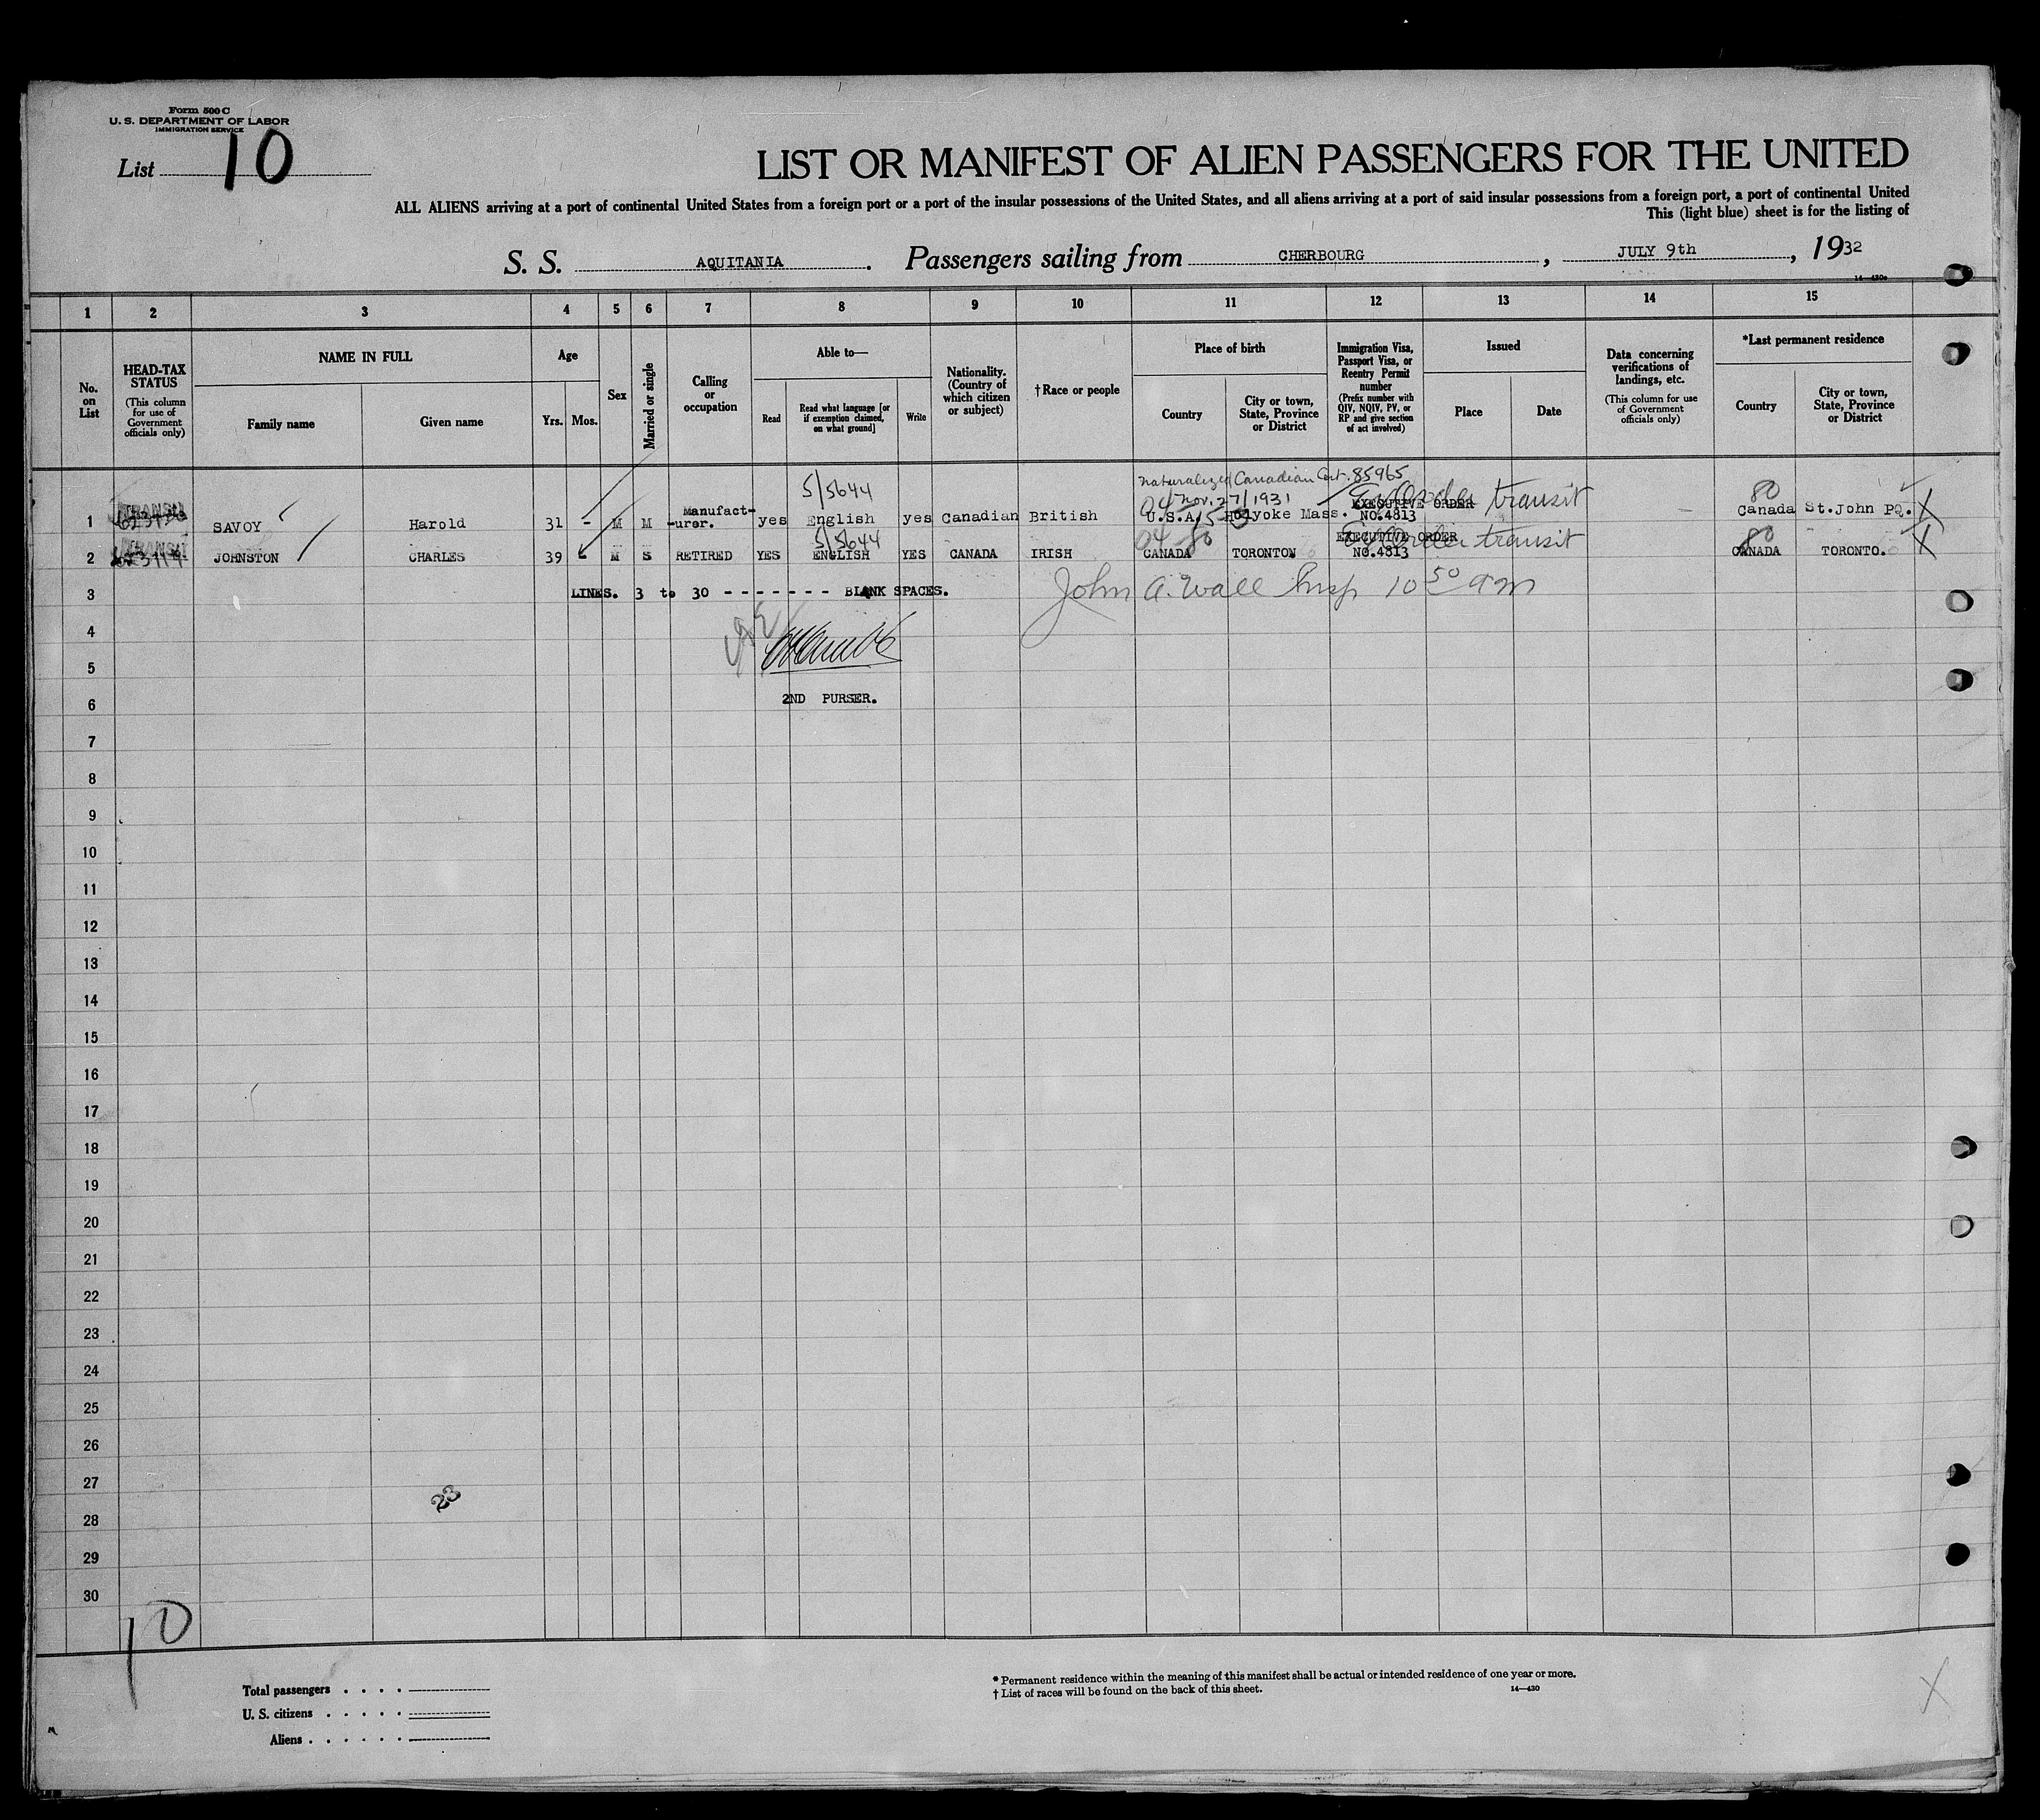 Form 500 C
U. S. DEPARTMENT OF LABOR
IMMIGRATION SERVICE
List 10
LIST OR MANIFEST OF ALIEN PASSENGERS FOR THE UNITED
ALL ALIENS arriving at a port of continental United States from a foreign port or a port of the insular possessions of the United States, and all aliens arriving at a port of said insular possessions from a foreign port, a port of continental United
This (light blue) sheet is for the listing of
S. S. AQUITANIA. Passengers sailing from CHERBOURG, JULY 9th, 1932
14—430a
1 2 3 4 5 6 7 8 9 10 11 12 13 14 15
No. on List
HEAD-TAX STATUS (This column for use of Government officials only)
NAME IN FULL
Family name
Given name
Age
Yrs. Mos.
Sex
Married or single
Calling or occupation
Able to—
Read
Read what language [or if exemption claimed, on what ground]
Write
Nationality. (Country of which citizen or subject)
†Race or people
Place of birth
Country
City or town, State, Province or District
Immigration Visa, Passport Visa, or Reentry Permit number (Prefix number with QIV, NQIV, PV, or RP and give section of act involved)
Issued
Place
Date
Data concerning verifications of landings, etc. (This column for use of Government officials only)
*Last permanent residence
Country
City or town, State, Province or District
5/5644 naturalized Canadian Cert. 85965
Nov. 27/1931
1 TRANSIT SAVOY Harold 31 - M M Manufact-urer. yes English yes Canadian British U.S.A. Holyoke Mass. EXECUTIVE ORDER NO.4813 transit 80 Canada St.John PQ. X
5/5644
2 TRANSIT JOHNSTON CHARLES 39 M S RETIRED YES ENGLISH YES CANADA IRISH 04 80 CANADA TORONTON EXECUTIVE ORDER NO.4813 transit 80 CANADA TORONTO. X
3 LINES. 3 to 30 - - - - - - - BLANK SPACES. John A. Wall Insp 10 50 am
4
5
6 2ND PURSER.
7
8
9
10
11
12
13
14
15
16
17
18
19
20
21
22
23
24
25
26
27
23
28
29
30
10
Total passengers . . . .
U. S. citizens . . . . .
Aliens . . . . . .
* Permanent residence within the meaning of this manifest shall be actual or intended residence of one year or more.
† List of races will be found on the back of this sheet.
14—430
X